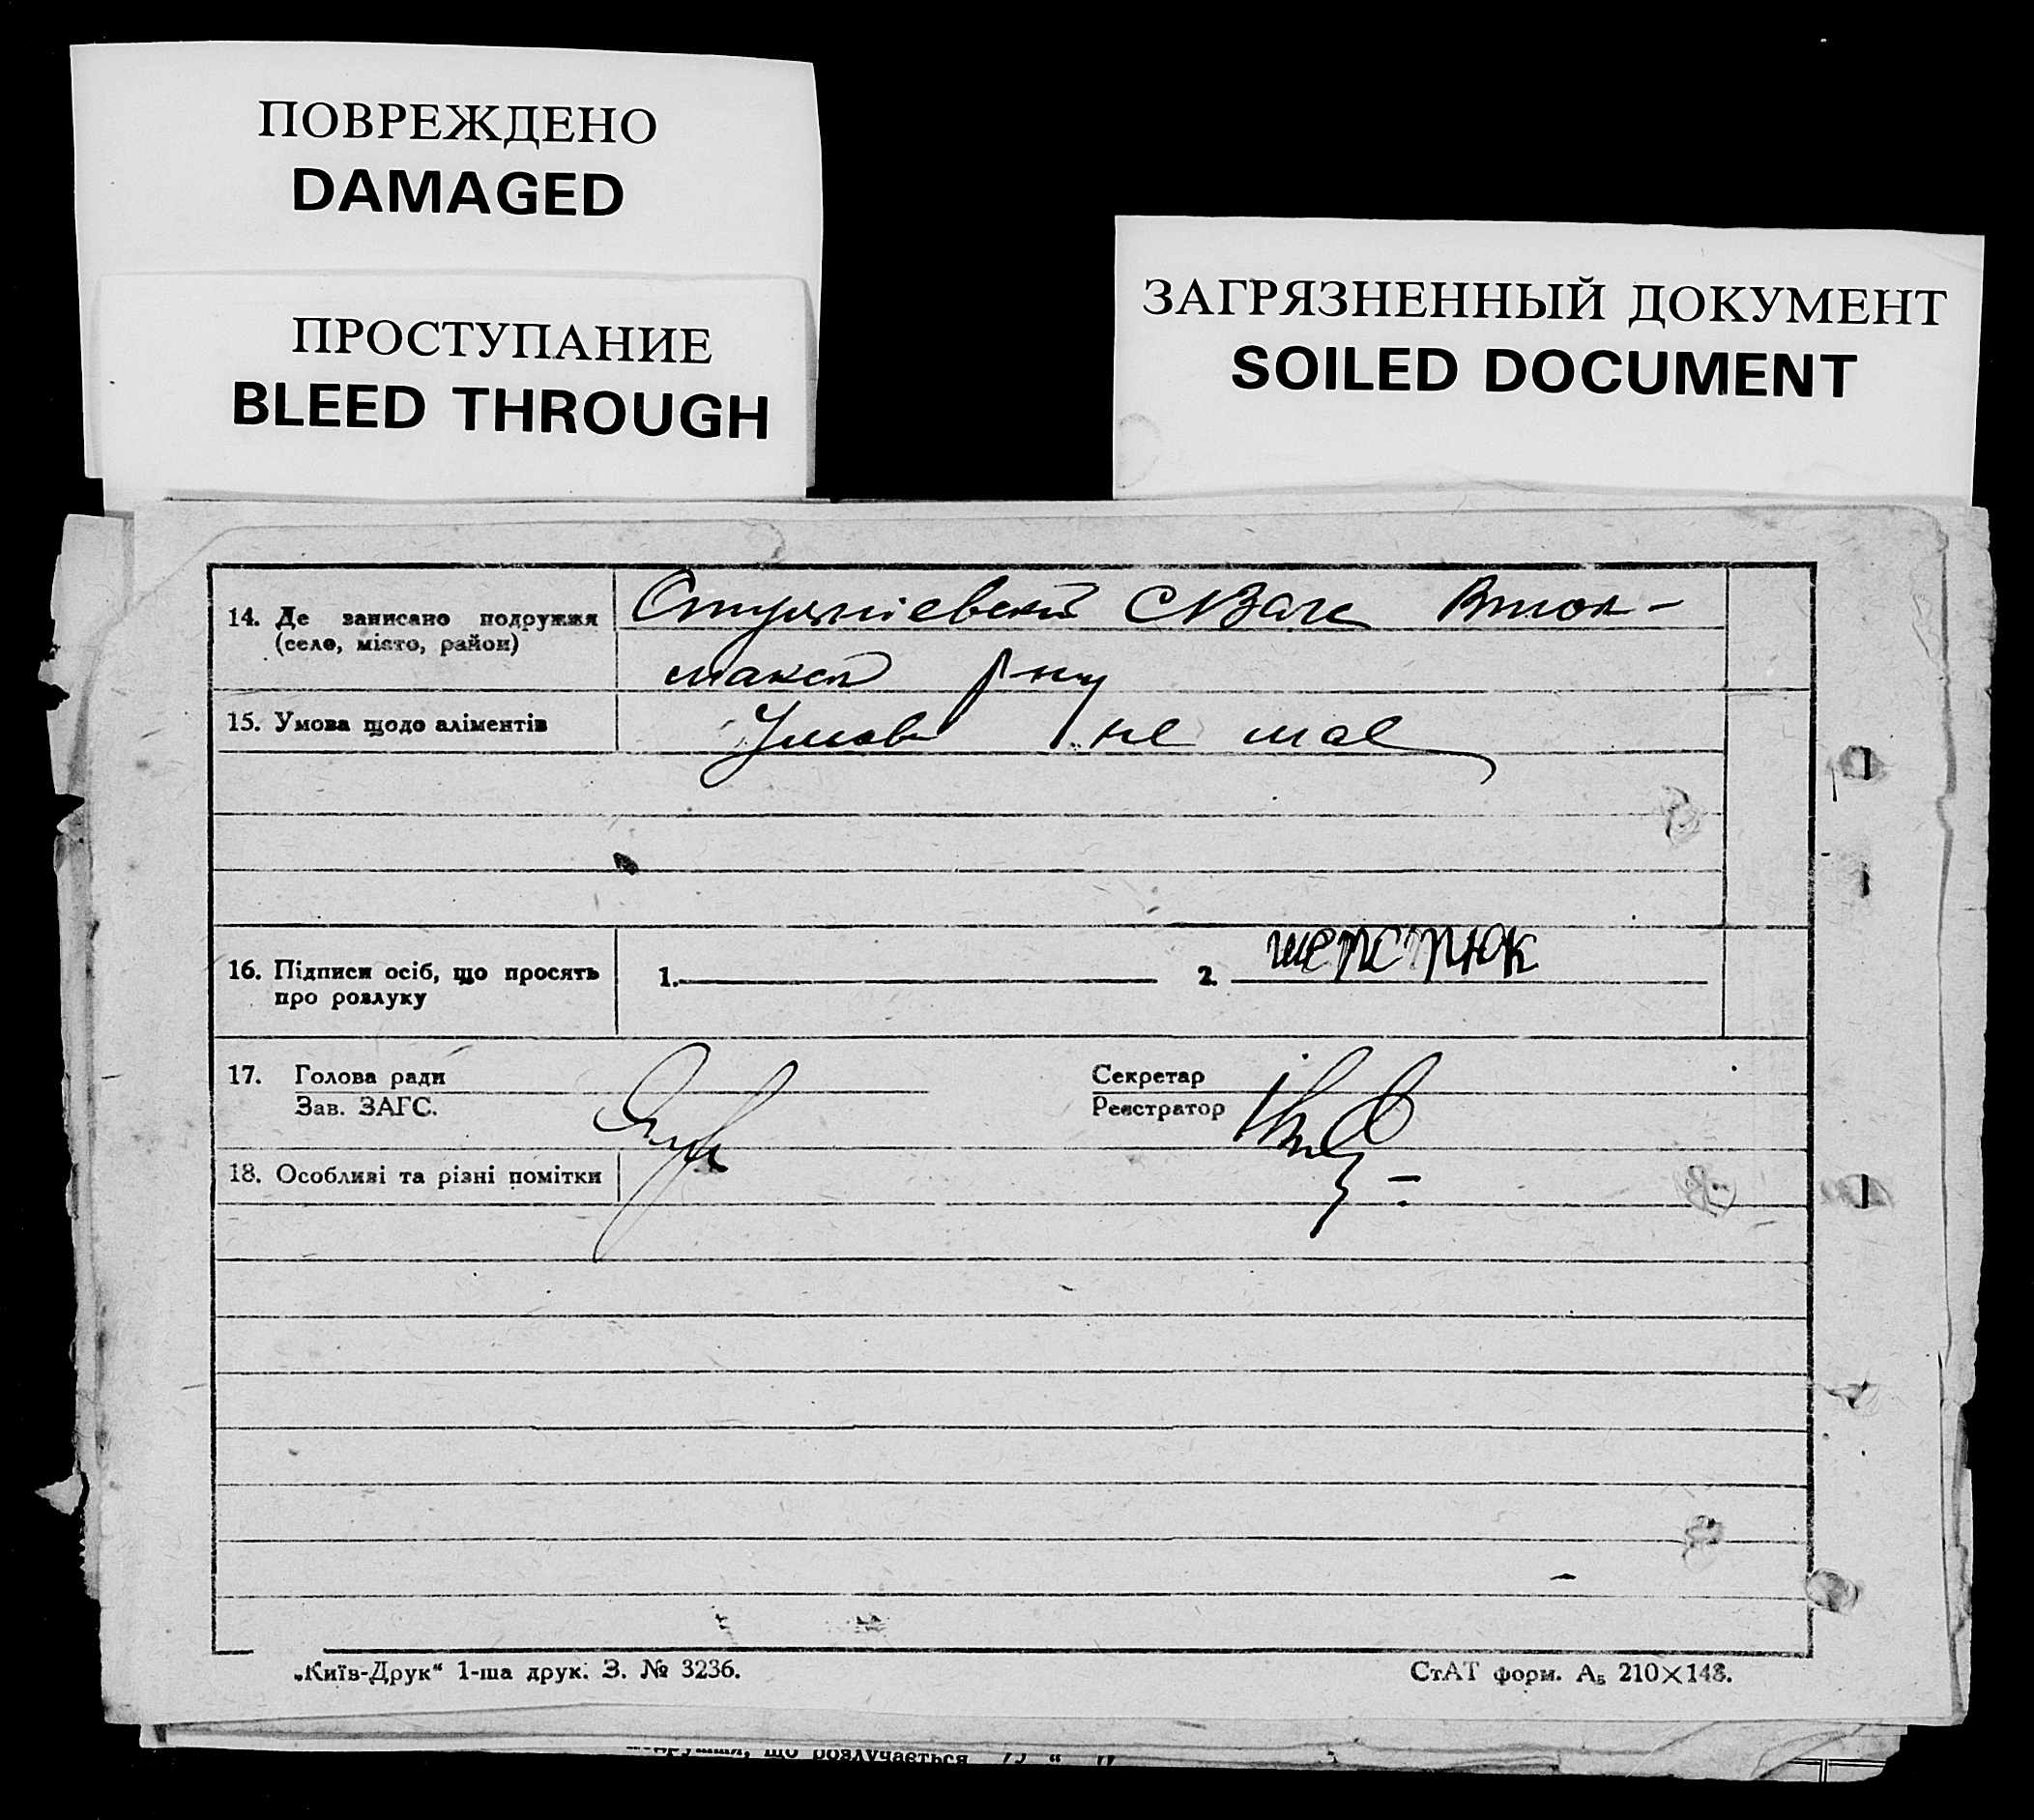 ПОВРЕЖДЕНО
DAMAGED
ПРОСТУПАНИЕ
BLEED THROUGH
ЗАГРЯЗНЕННЫЙ ДОКУМЕНТ
SOILED DOCUMENT
14. Де записано подружжя
(село, місто, район)
15. Умова щодо аліментів
Умов не має
16. Підписи осіб, що просять
про розлуку
1. 2.
17. Голова ради Секретар
Зав. ЗАГС. Реєстратор
18. Особливі та різні помітки
„Київ-Друк“ 1-ша друк. З. № 3236. СтАТ форм. А₅ 210×148.
що розлучається